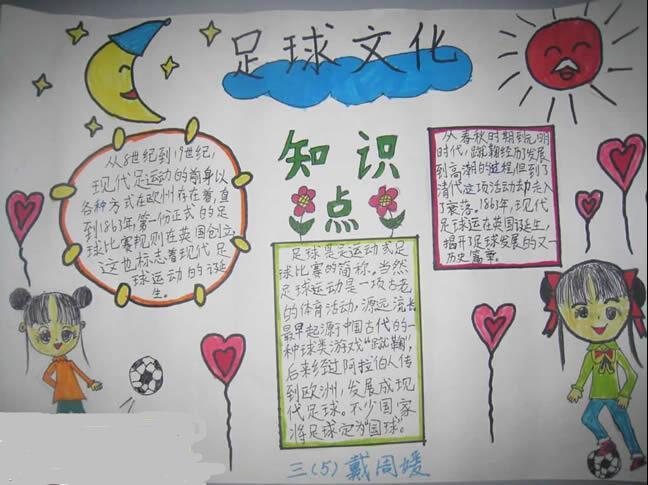 足球文化
知识点
从8世纪到19世纪,
现代足运动的前身以
各种方式在欧州存在着,直
到1863年,第一份正式的足
球比赛规则在英国创立,
这也标志着现代足
球运动的诞
生。
足球是足运动或足
球比赛的简称。当然
足球运动是一项古老
的体育活动,源远流长
最早起源于中国古代的一
种球类游戏"蹴鞠",
后来经过阿拉伯人传
到欧洲,发展成现
代足球。不少国家
将足球定为"国球"。
从春秋时期到元明
时代,蹴鞠经历发展
到高潮的过程但到了
清代这项活动却走入
了衰落。1863年,现代
足球运在英国诞生,
揭开了足球发展的又一
历史篇章。
三(5)戴周媛